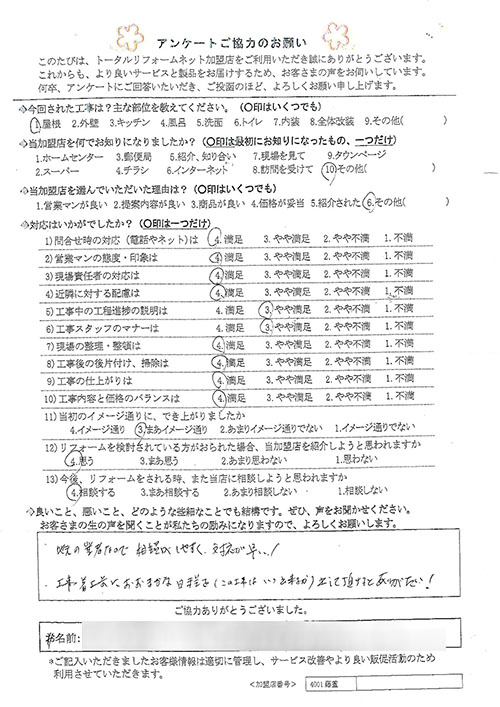 アンケートご協力のお願い
このたびは、トータルリフォームネット加盟店をご利用いただき誠にありがとうございます。
これからも、より良いサービスと製品をお届けするため、お客さまの声をお伺いしています。
何卒、アンケートにご回答いただき、ご投函のほど、よろしくお願い申し上げます。
◇今回された工事は？主な部位を教えてください。（〇印はいくつでも）
1.屋根 2.外壁 3.キッチン 4.風呂 5.洗面 6.トイレ 7.内装 8.全体改装 9.その他( )
◇当加盟店を何でお知りになりましたか？（〇印は最初にお知りになったもの、一つだけ）
1.ホームセンター 3.郵便局 5.紹介、知り合い 7.現場を見て 9.タウンページ
2.スーパー 4.チラシ 6.インターネット 8.訪問を受けて 10.その他( )
◇当加盟店を選んでいただいた理由は？（〇印はいくつでも）
1.営業マンが良い 2.提案内容が良い 3.商品が良い 4.価格が妥当 5.紹介された 6.その他( )
◇対応はいかがでしたか？（〇印は一つだけ）
1)問合せ時の対応（電話やネット）は 4.満足 3.やや満足 2.やや不満 1.不満
2)営業マンの態度・印象は 4.満足 3.やや満足 2.やや不満 1.不満
3)現場責任者の対応は 4.満足 3.やや満足 2.やや不満 1.不満
4)近隣に対する配慮は 4.満足 3.やや満足 2.やや不満 1.不満
5)工事中の工程進捗の説明は 4.満足 3.やや満足 2.やや不満 1.不満
6)工事スタッフのマナーは 4.満足 3.やや満足 2.やや不満 1.不満
7)現場の整理・整頓は 4.満足 3.やや満足 2.やや不満 1.不満
8)工事後の後片付け、掃除は 4.満足 3.やや満足 2.やや不満 1.不満
9)工事の仕上がりは 4.満足 3.やや満足 2.やや不満 1.不満
10)工事内容と価格のバランスは 4.満足 3.やや満足 2.やや不満 1.不満
11)当初のイメージ通りに、でき上がりましたか
4.イメージ通り 3.まあイメージ通り 2.あまりイメージ通りでない 1.イメージ通りでない
12)リフォームを検討されている方がおられた場合、当加盟店を紹介しようと思われますか
4.思う 3.まあ思う 2.あまり思わない 1.思わない
13)今後、リフォームをされる時、また当店に相談しようと思われますか
4.相談する 3.まあ相談する 2.あまり相談しない 1.相談しない
◇良いこと、悪いこと、どのような些細なことでも結構です。ぜひ、声をお聞かせください。
お客さまの生の声を聞くことが私たちの励みになりますので、よろしくお願いします。
地元の業者なので 相談しやすく、対応が早い！
工事着工前におおまかな日程を(この工事はいつ頃か)出して頂けると ありがたい！
ご協力ありがとうございました。
お名前:
*ご記入いただきましたお客様情報は適切に管理し、サービス改善やより良い販促活動のため
利用させていただきます。
<加盟店番号> 4001